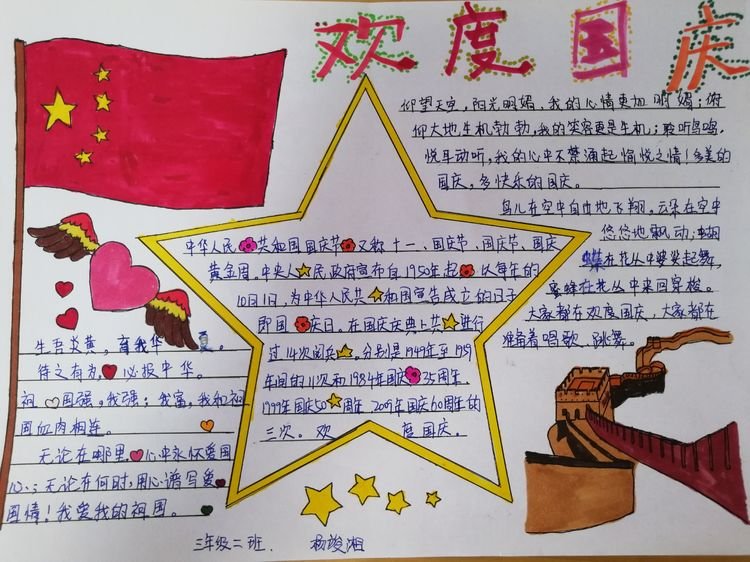 欢度国庆
仰望天空，阳光明媚，我的心情更加明媚；俯
仰大地生机勃勃，我的笑容更是生机；聆听鸟鸣，
悦耳动听，我的心中不禁涌起愉悦之情！多美的
国庆，多快乐的国庆。
鸟儿在空中自由地飞翔，云朵在空中
悠悠地飘动；蝴
蝶在花丛中婆娑起舞，
蜜蜂在花丛中来回穿梭。
大家都在欢度国庆，大家都在
准备着唱歌、跳舞。
中华人民共和国国庆节又称十一、国庆节、国庆节、国庆
黄金周。中央人民政府宣布自1950年起以每年的
10月1日，为中华人民共和国宣告成立的日子
即国庆日。在国庆庆典上共进行
过14次阅兵。分别是1949年至1959
年间的11次和1984年国庆35周年、
1999年国庆50周年 2009年国庆60周年的
三次。欢度国庆。
生吾炎黄，育我华夏。
待之有为，必报中华。
祖国强，我强；我富，我和祖
国血肉相连。
无论在哪里，心中永怀爱国
心；无论在何时，用心谱写爱
国情！我爱我的祖国。
三年级二班. 杨竣湘